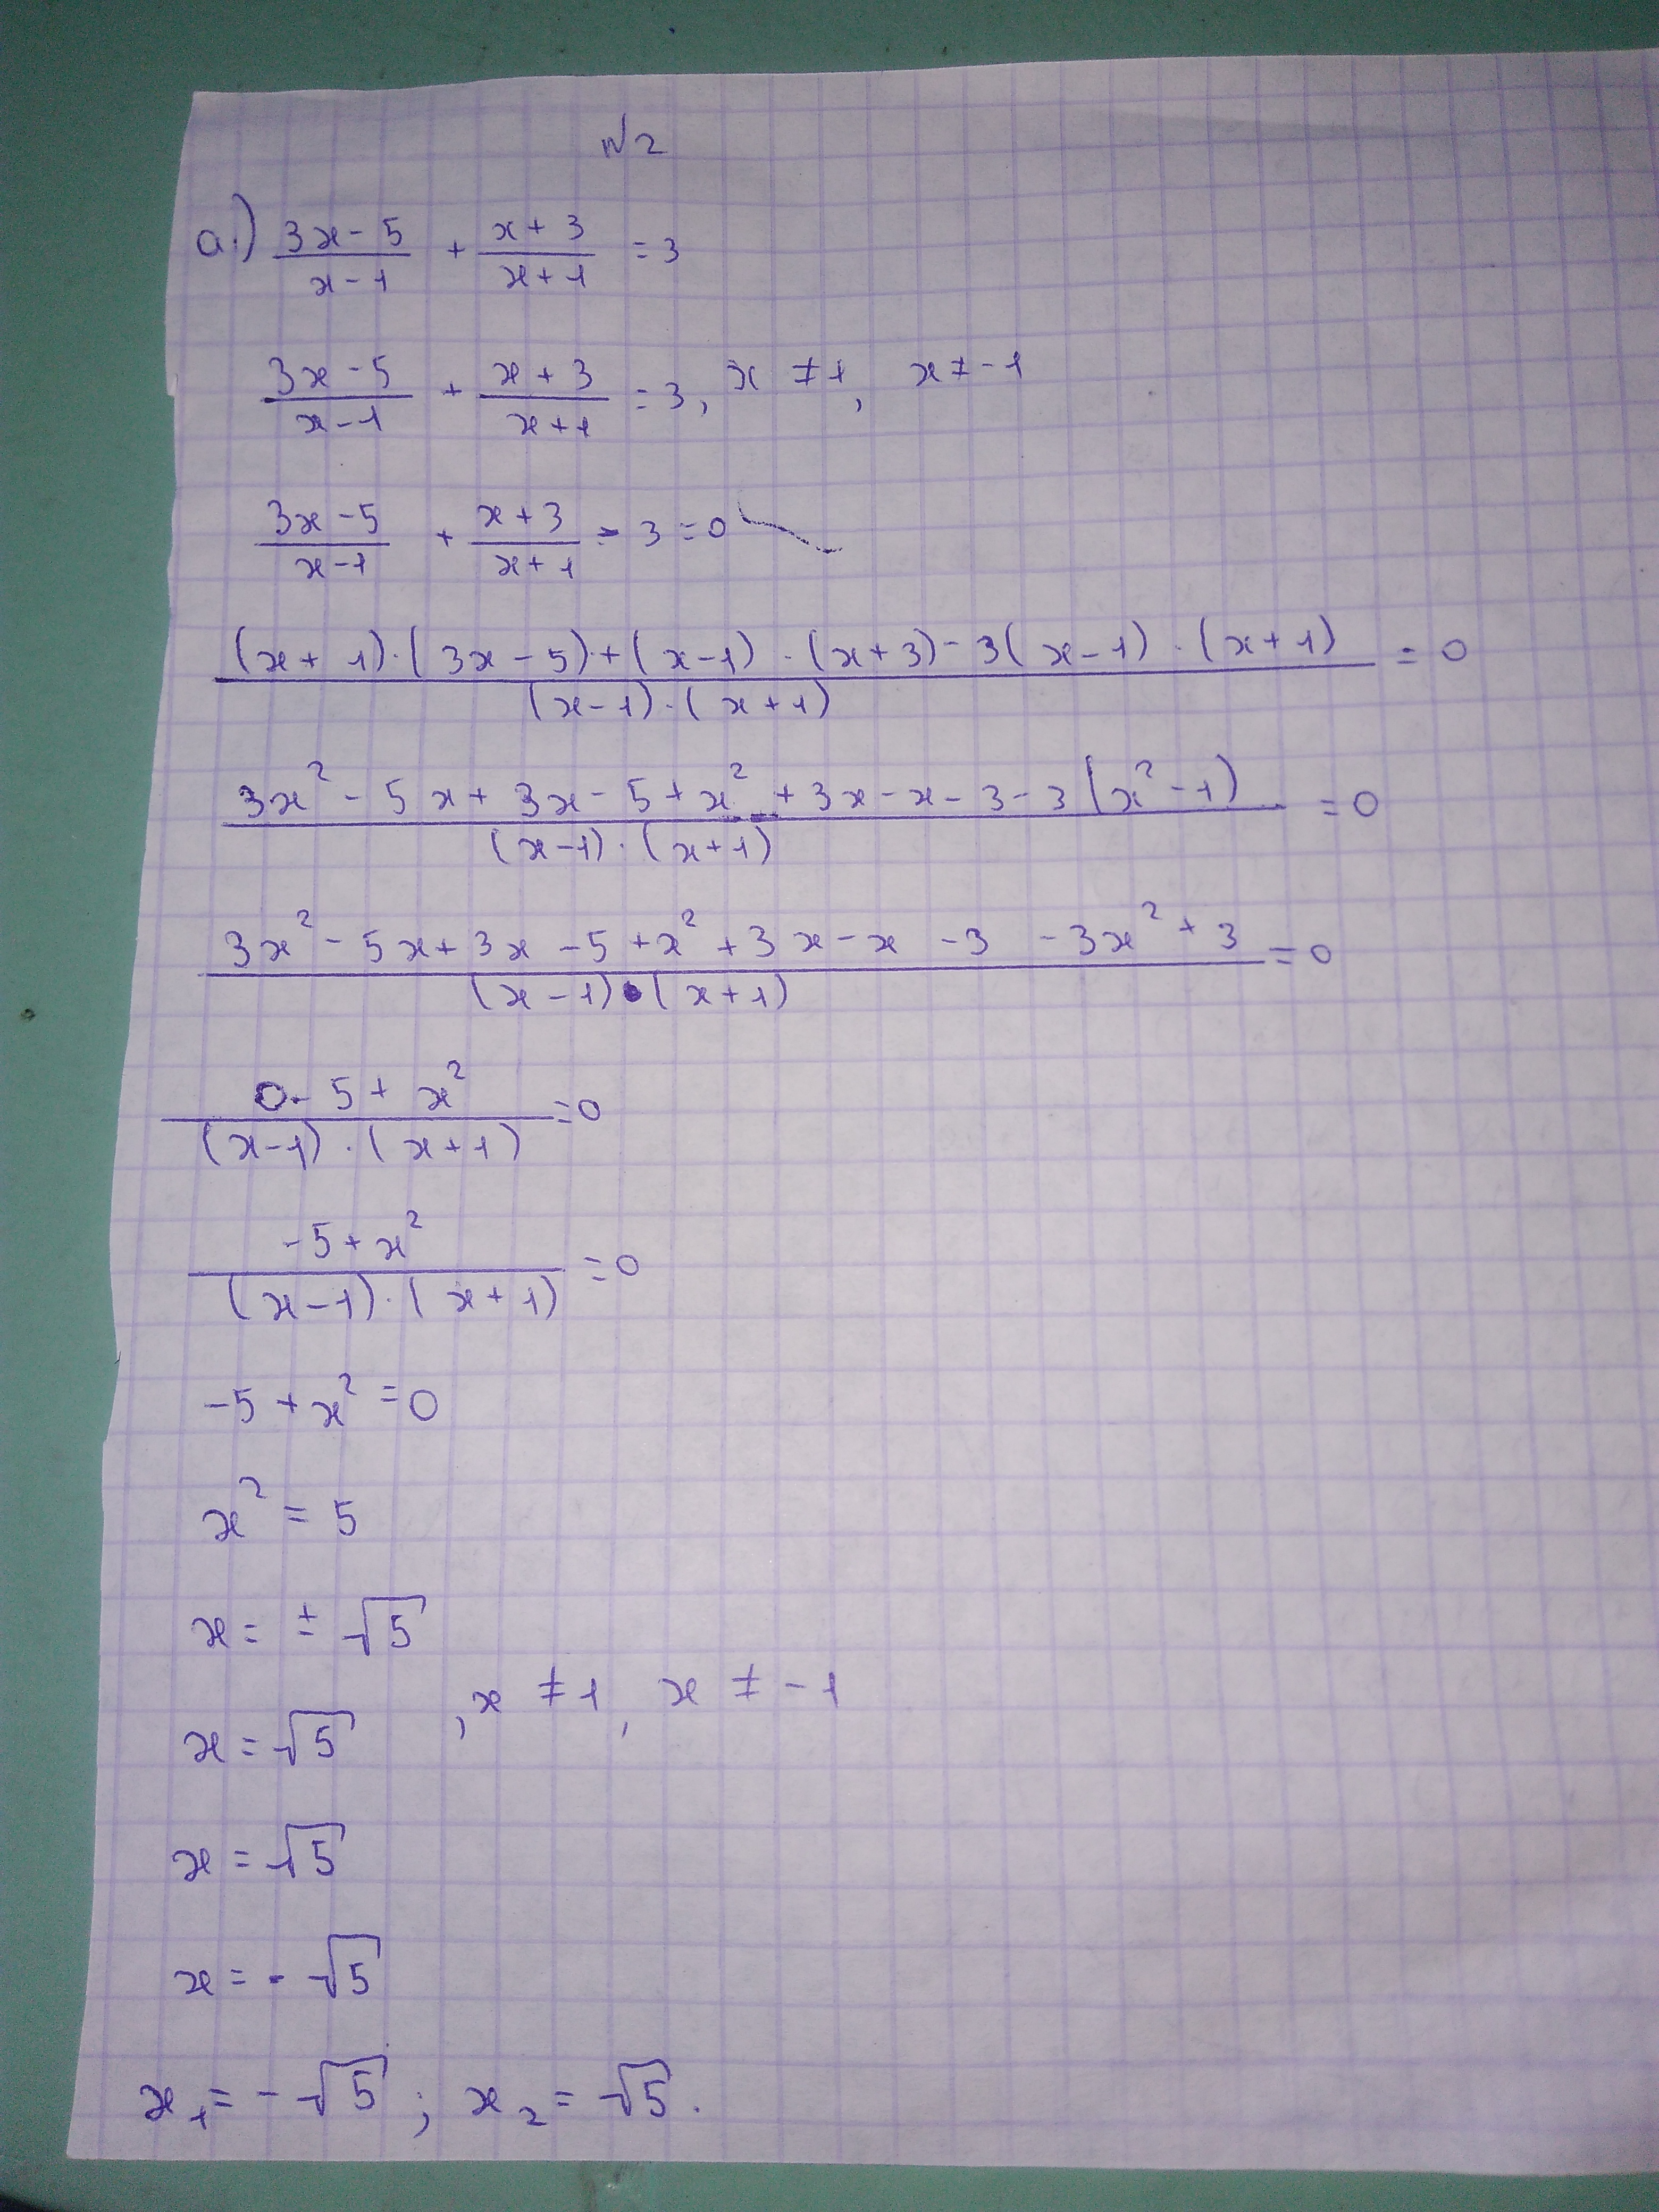 №2
а.) (3x-5)/(x-1) + (x+3)/(x+1) = 3
(3x-5)/(x-1) + (x+3)/(x+1) = 3, x ≠ 1, x ≠ -1
(3x-5)/(x-1) + (x+3)/(x+1) - 3 = 0
((x+1)·(3x-5)+(x-1)·(x+3)-3(x-1)·(x+1))/((x-1)·(x+1)) = 0
(3x²-5x+3x-5+x²+3x-x-3-3(x²-1))/((x-1)·(x+1)) = 0
(3x²-5x+3x-5+x²+3x-x-3-3x²+3)/((x-1)·(x+1)) = 0
(0-5+x²)/((x-1)·(x+1)) = 0
(-5+x²)/((x-1)·(x+1)) = 0
-5+x² = 0
x² = 5
x = ±√5
x = √5, x ≠ 1, x ≠ -1
x = √5
x = -√5
x₁ = -√5; x₂ = √5.